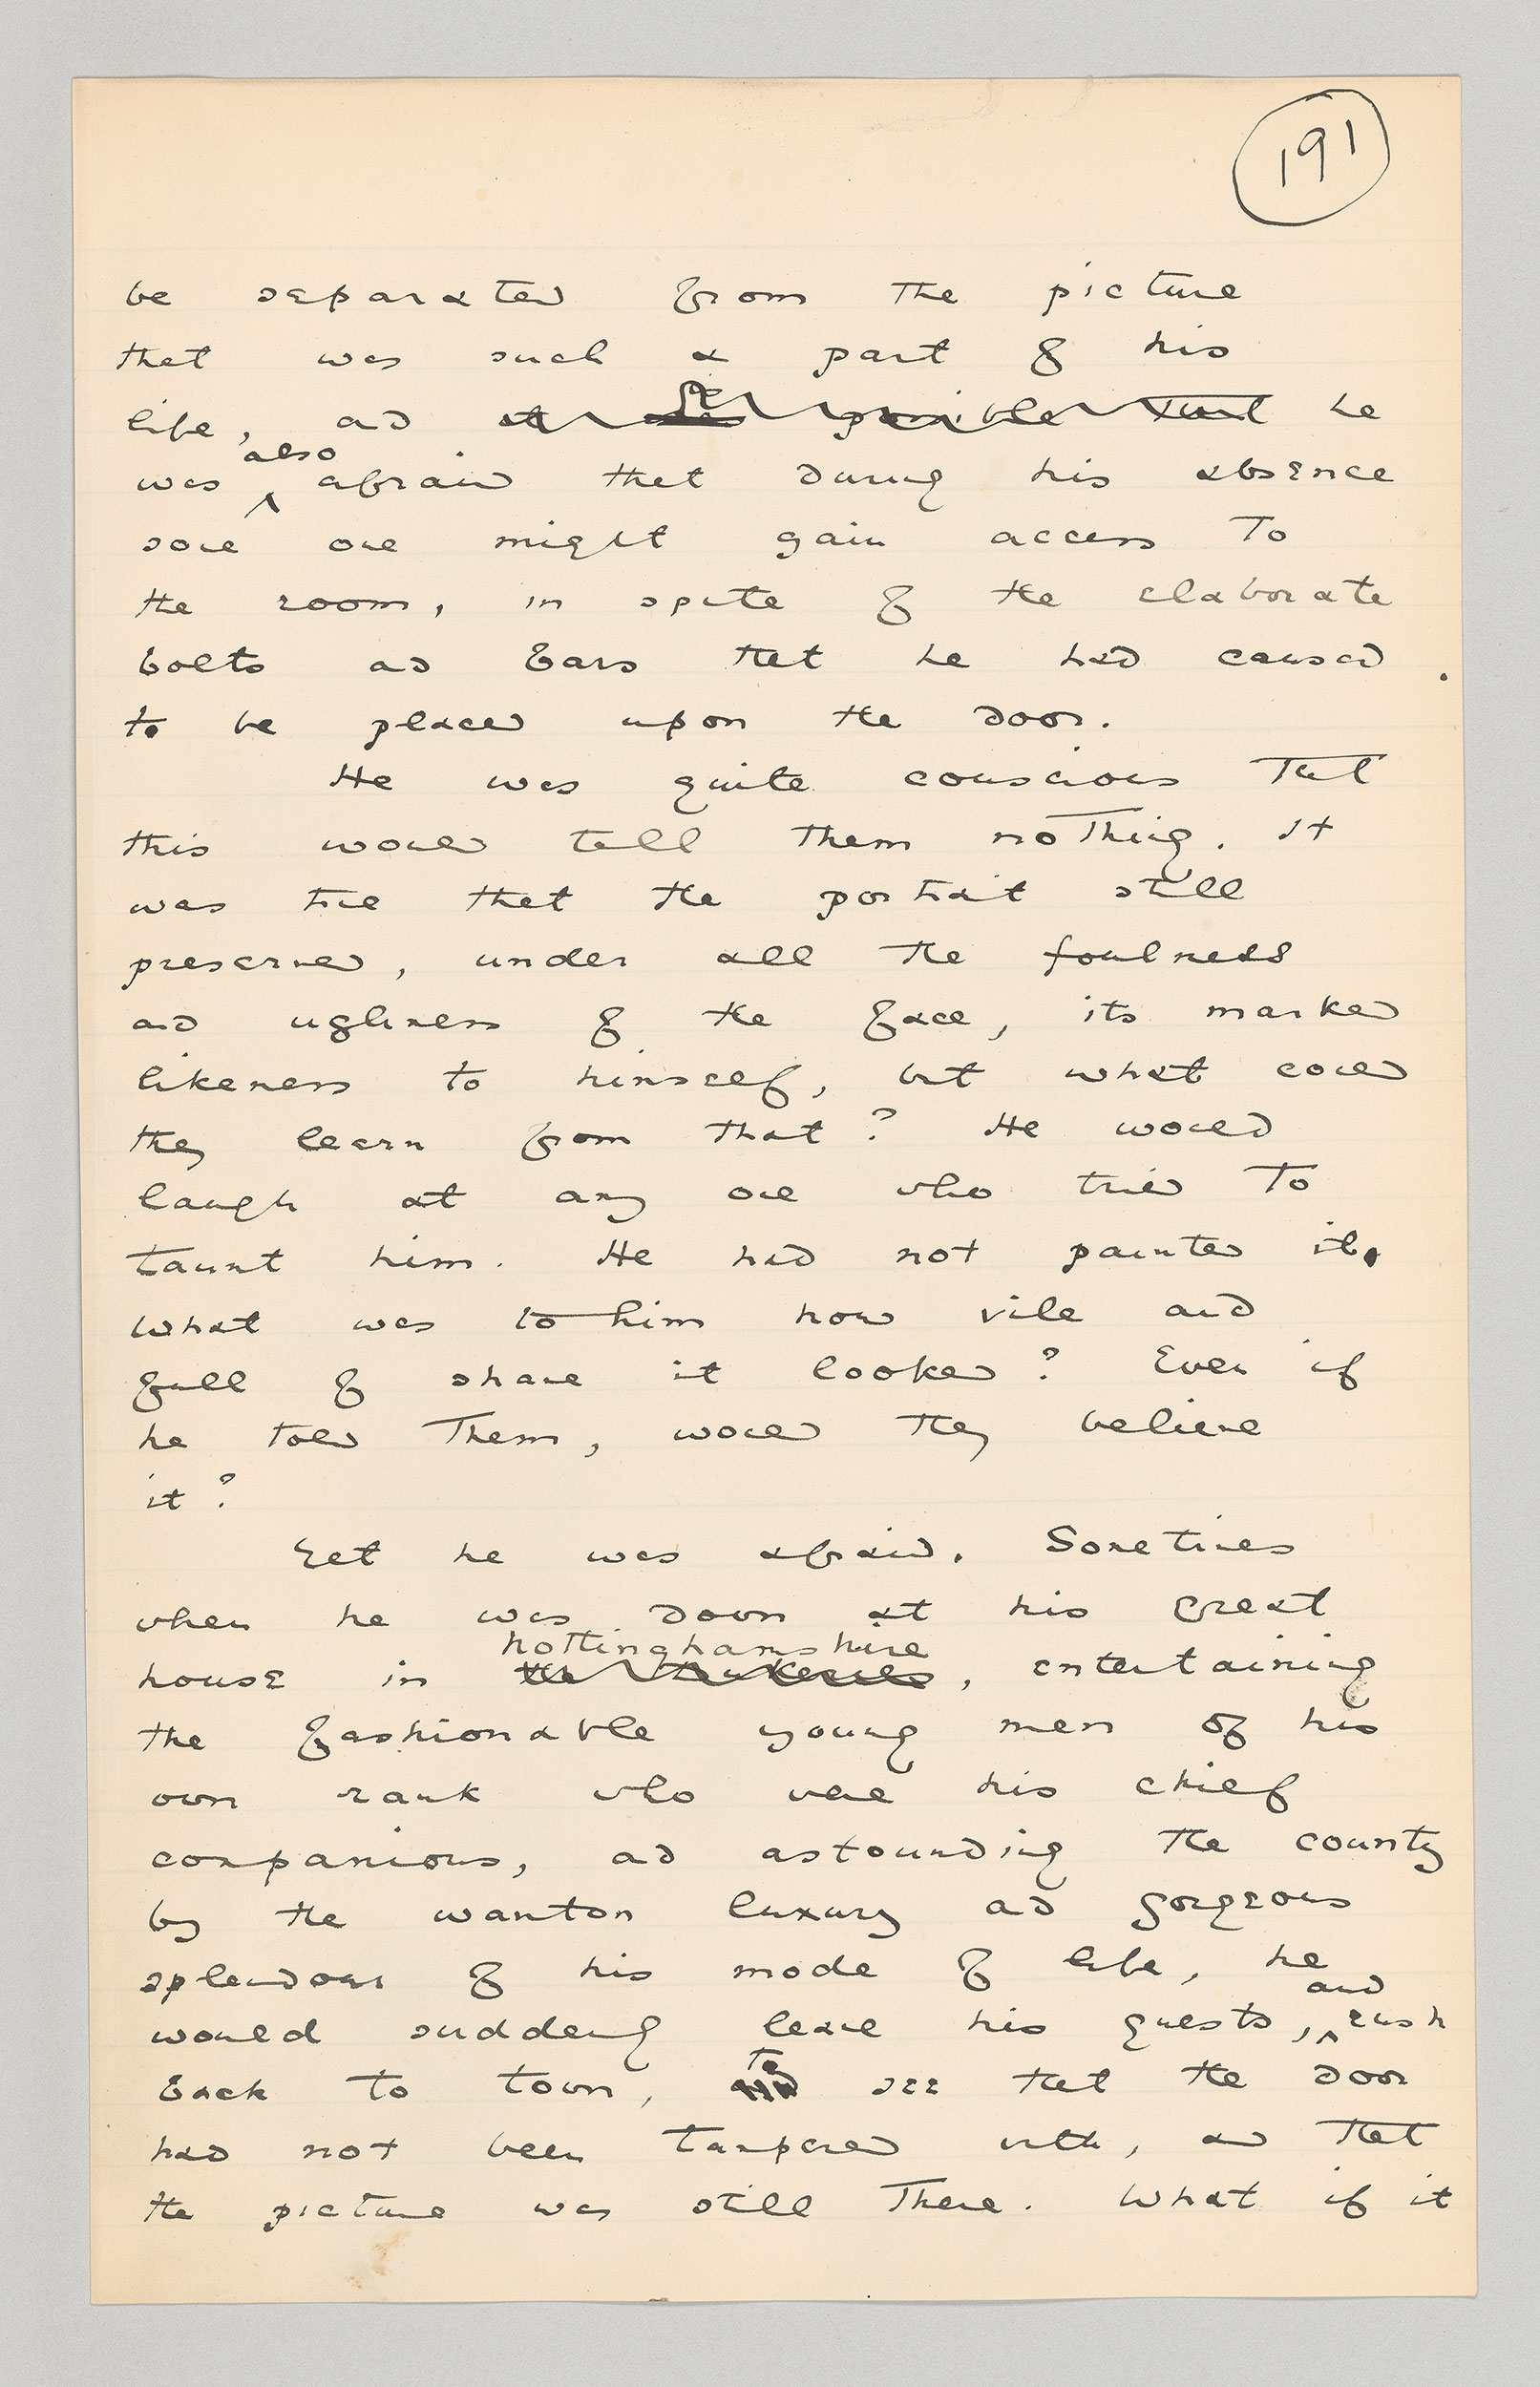 191
be separated from the picture
that was such a part of his
life, and it was possible that he
was also afraid that during his absence
some one might gain access to
the room, in spite of the elaborate
bolts and bars that he had caused
to be placed upon the door.
He was quite conscious that
this would tell them nothing. It
was true that the portrait still
preserved, under all the foulness
and ugliness of the face, its marked
likeness to himself, but what could
they learn from that? He would
laugh at any one who tried to
taunt him. He had not painted it.
What was to him how vile and
full of shame it looked? Even if
he told them, would they believe
it?
Yet he was afraid. Sometimes
when he was down at his great
Nottinghamshire
house in the , entertaining
the fashionable young men of his
own rank who were his chief
companions, and astounding the county
by the wanton luxury and gorgeous
splendour of his mode of life, he
would suddenly leave his guests, and rush
back to town, to see that the door
had not been tampered with, and that
the picture was still there. What if it